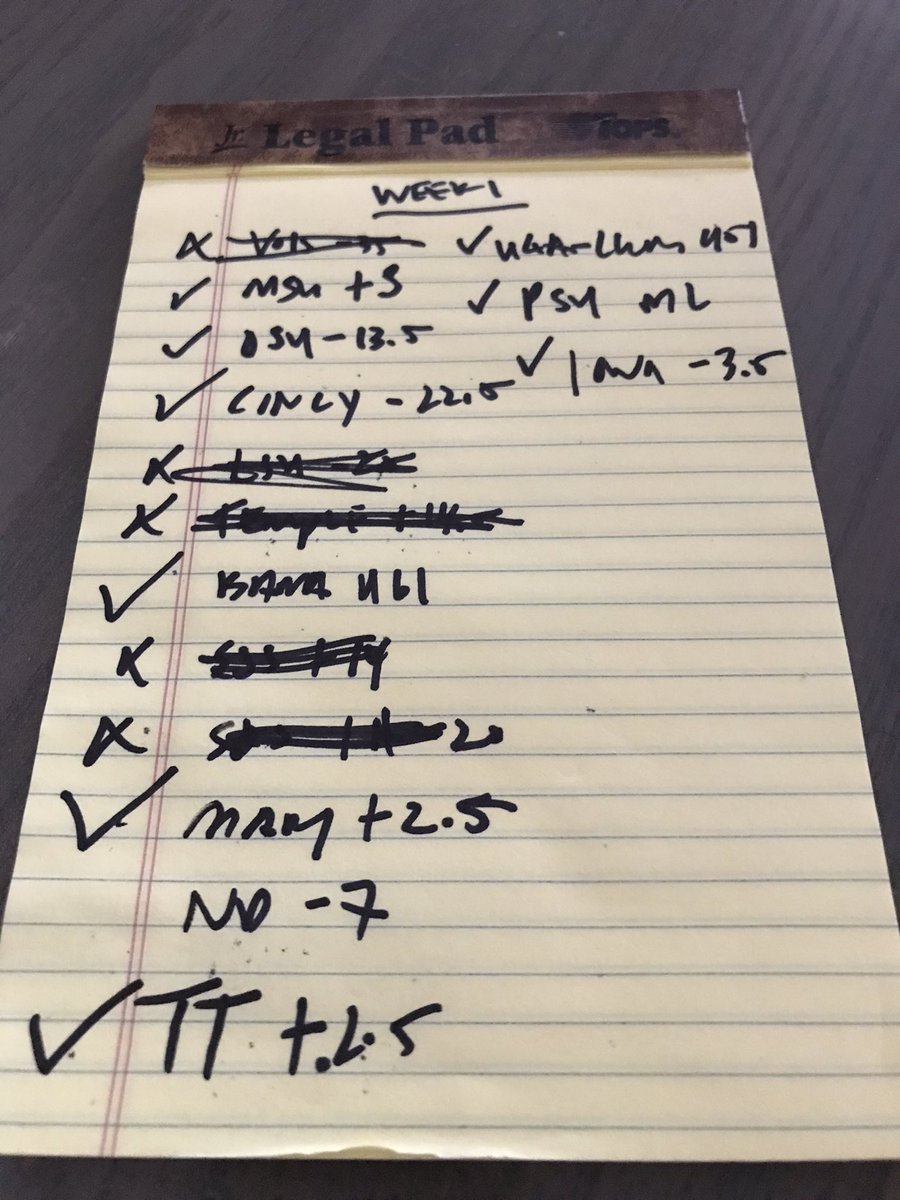 Jr. Legal Pad TOPS
WEEK 1
X ✓ UGA-CLEM U51
✓ MSU +3 ✓ PSU ML
✓ OSU -13.5 ✓ IOWA -3.5
✓ CINCY -22.5
X
X
✓ BAMA U61
X
X 20
✓ MARY +2.5
ND -7
✓ TT +2.5